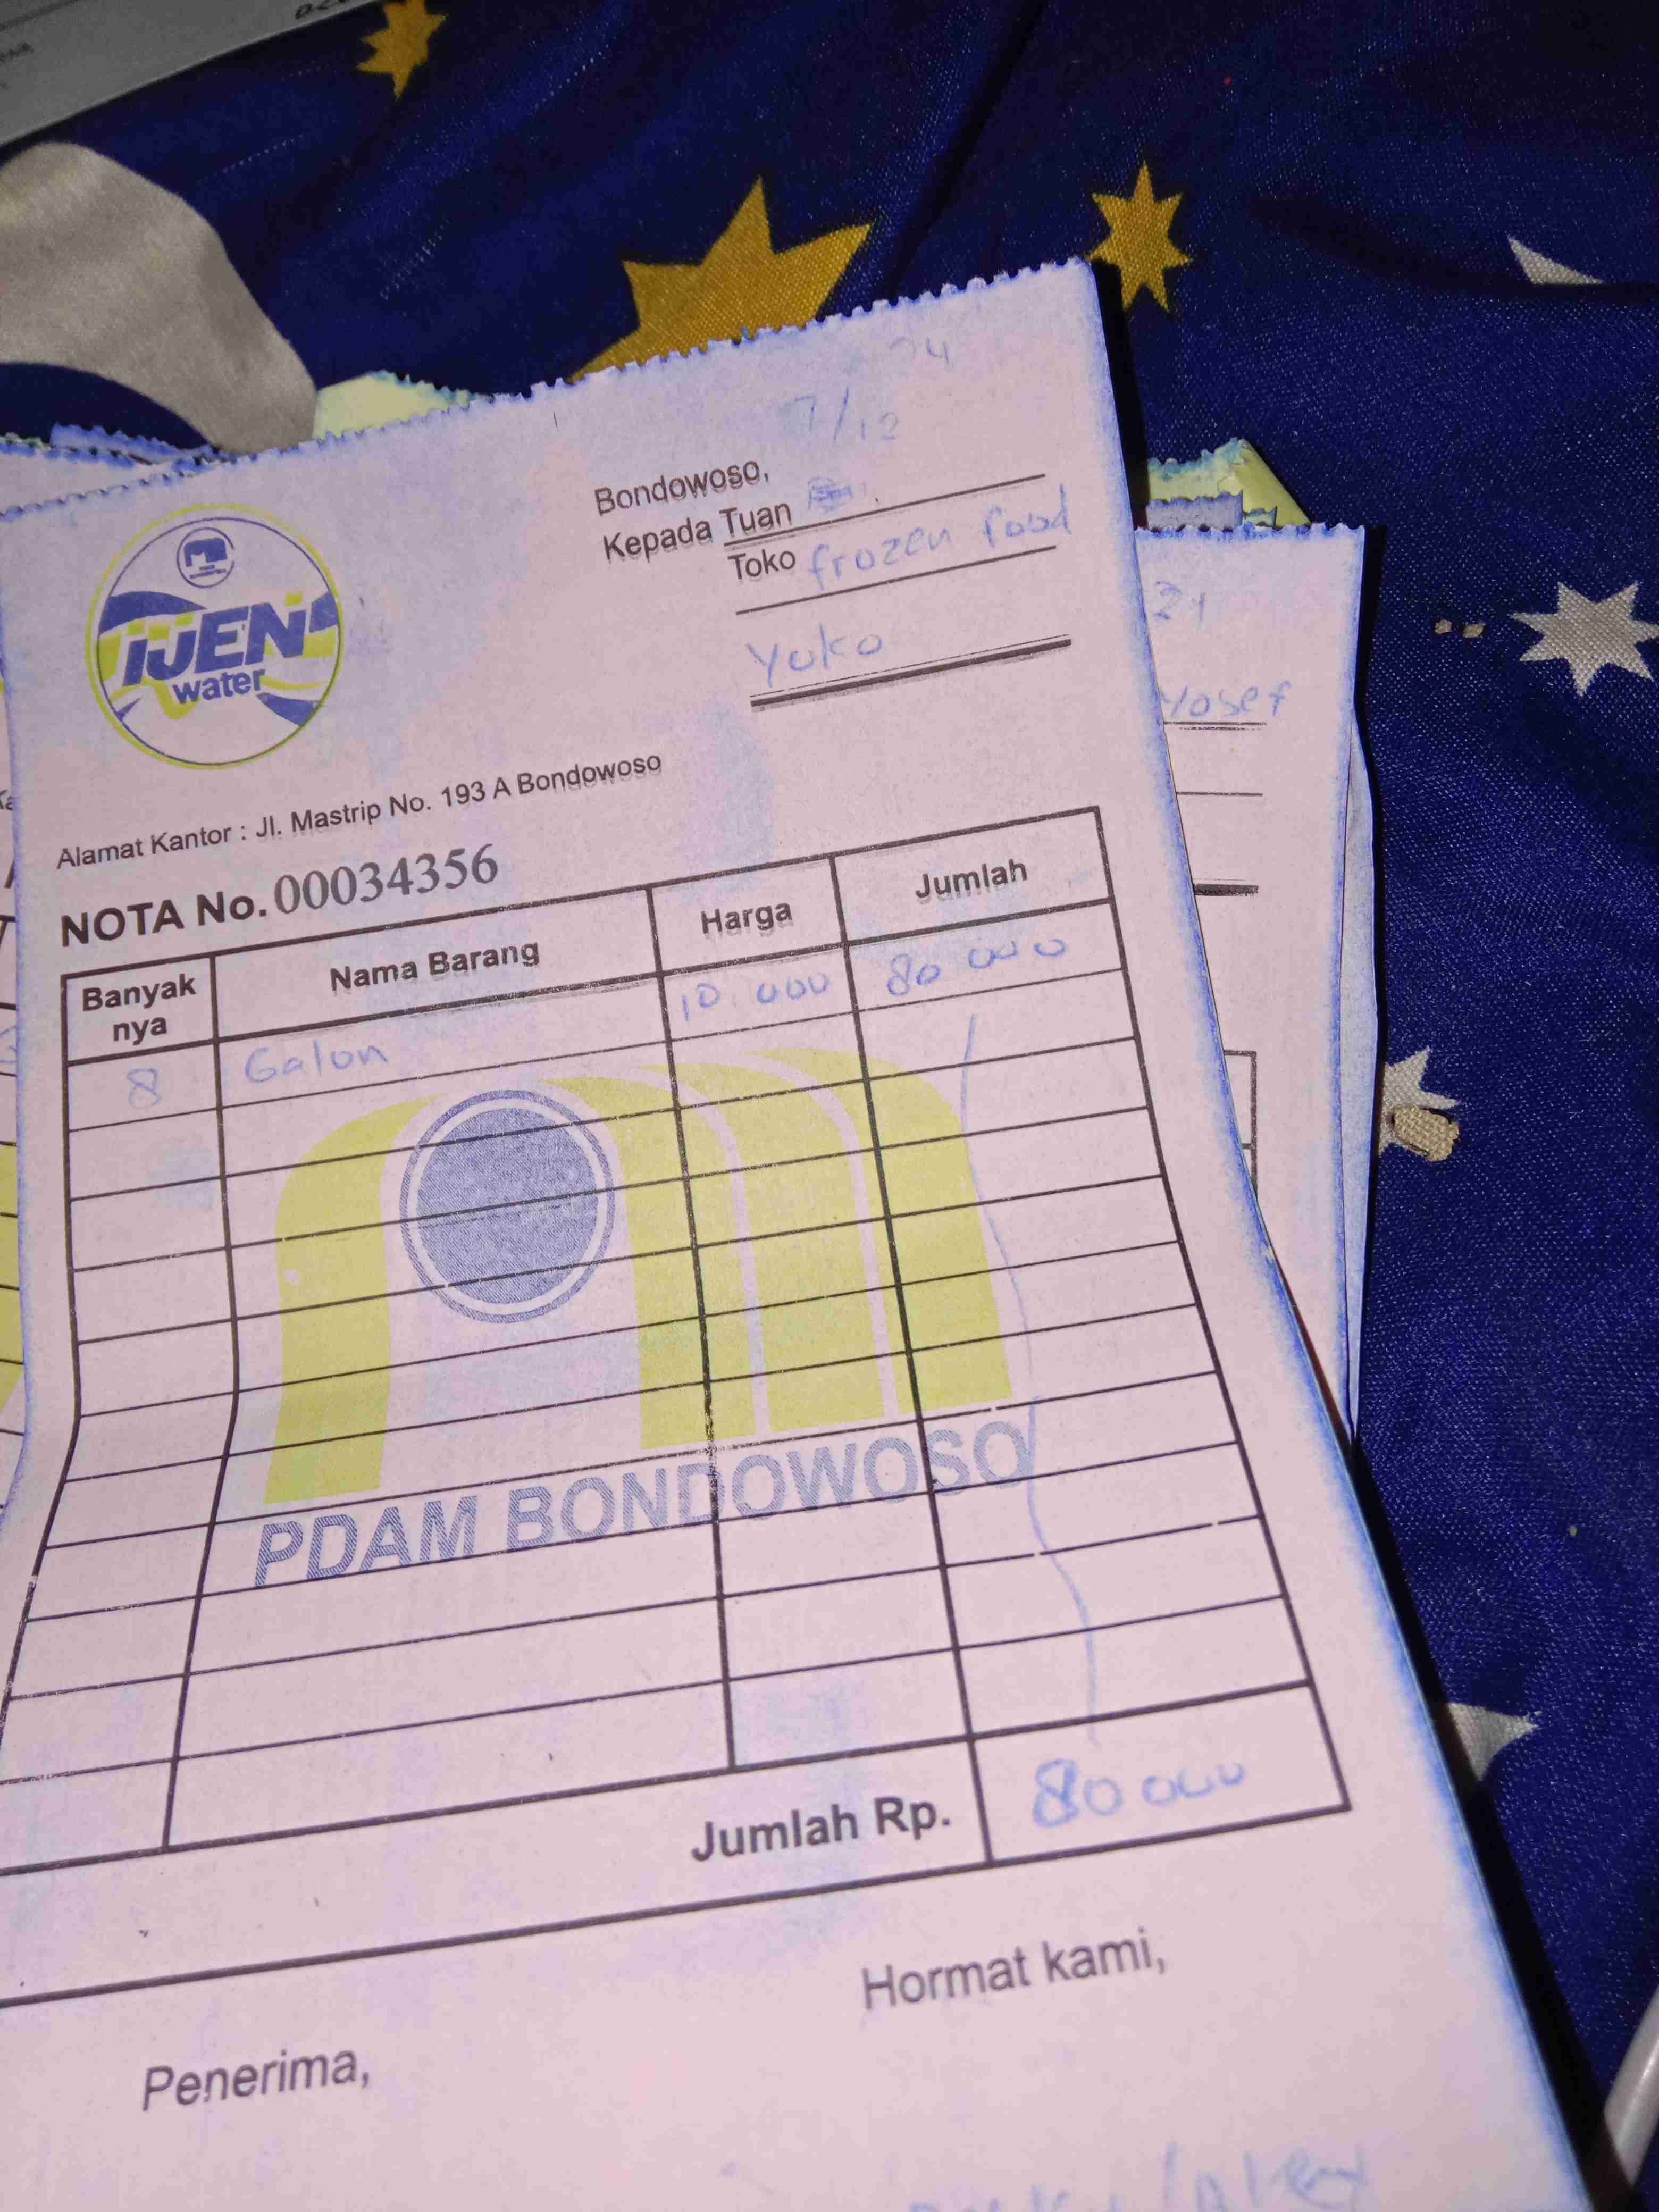 7/12
Bondowoso,
Kepada Tuan
Toko frozen food
Yuko
IJEN
water
Alamat Kantor : Jl. Mastrip No. 193 A Bondowoso
NOTA No. 00034356
Banyak nya Nama Barang Harga Jumlah
8 Galon 10 000 80 000
PDAM BONDOWOSO
Jumlah Rp. 80 000
Hormat kami,
Penerima,
21
Yosef